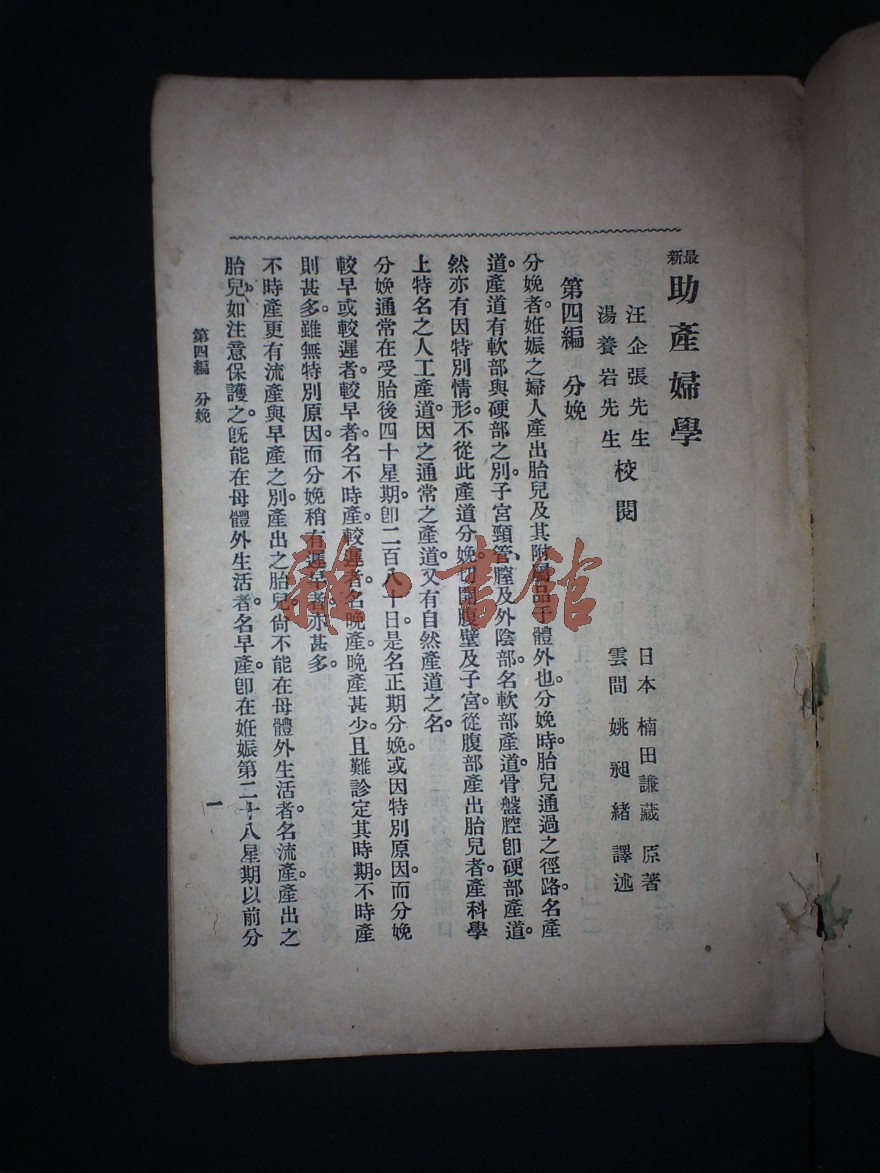 最新 助產婦學
汪企張先生
湯養岩先生 校閱
日本 楠田謙藏 原著
雲間 姚昶緒 譯述
第四編 分娩
分娩者。妊娠之婦人產出胎兒及其附屬品于體外也。分娩時胎兒通過之徑路。名產
道。產道有軟部與硬部之別。子宮頸管、膣及外陰部。名軟部產道。骨盤腔卽硬部產道。
然亦有因特別情形。不從此產道分娩。切開腹壁及子宮。從腹部產出胎兒者。產科學
上特名之人工產道。因之通常之產道。又有自然產道之名。
分娩通常在受胎後四十星期。卽二百八十日。是名正期分娩。或因特別原因。而分娩
較早或較遲者。較早者。名不時產。較遲者。名晚產。晚產甚少。且難診定其時期。不時產
則甚多。雖無特別原因。而分娩稍有遲早者。亦甚多。
不時產更有流產與早產之別。產出之胎兒。尙不能在母體外生活者。名流產。產出之
胎兒。如注意保護之。旣能在母體外生活者。名早產。卽在妊娠第二十八星期以前分
第四編 分娩
一
雜·書館